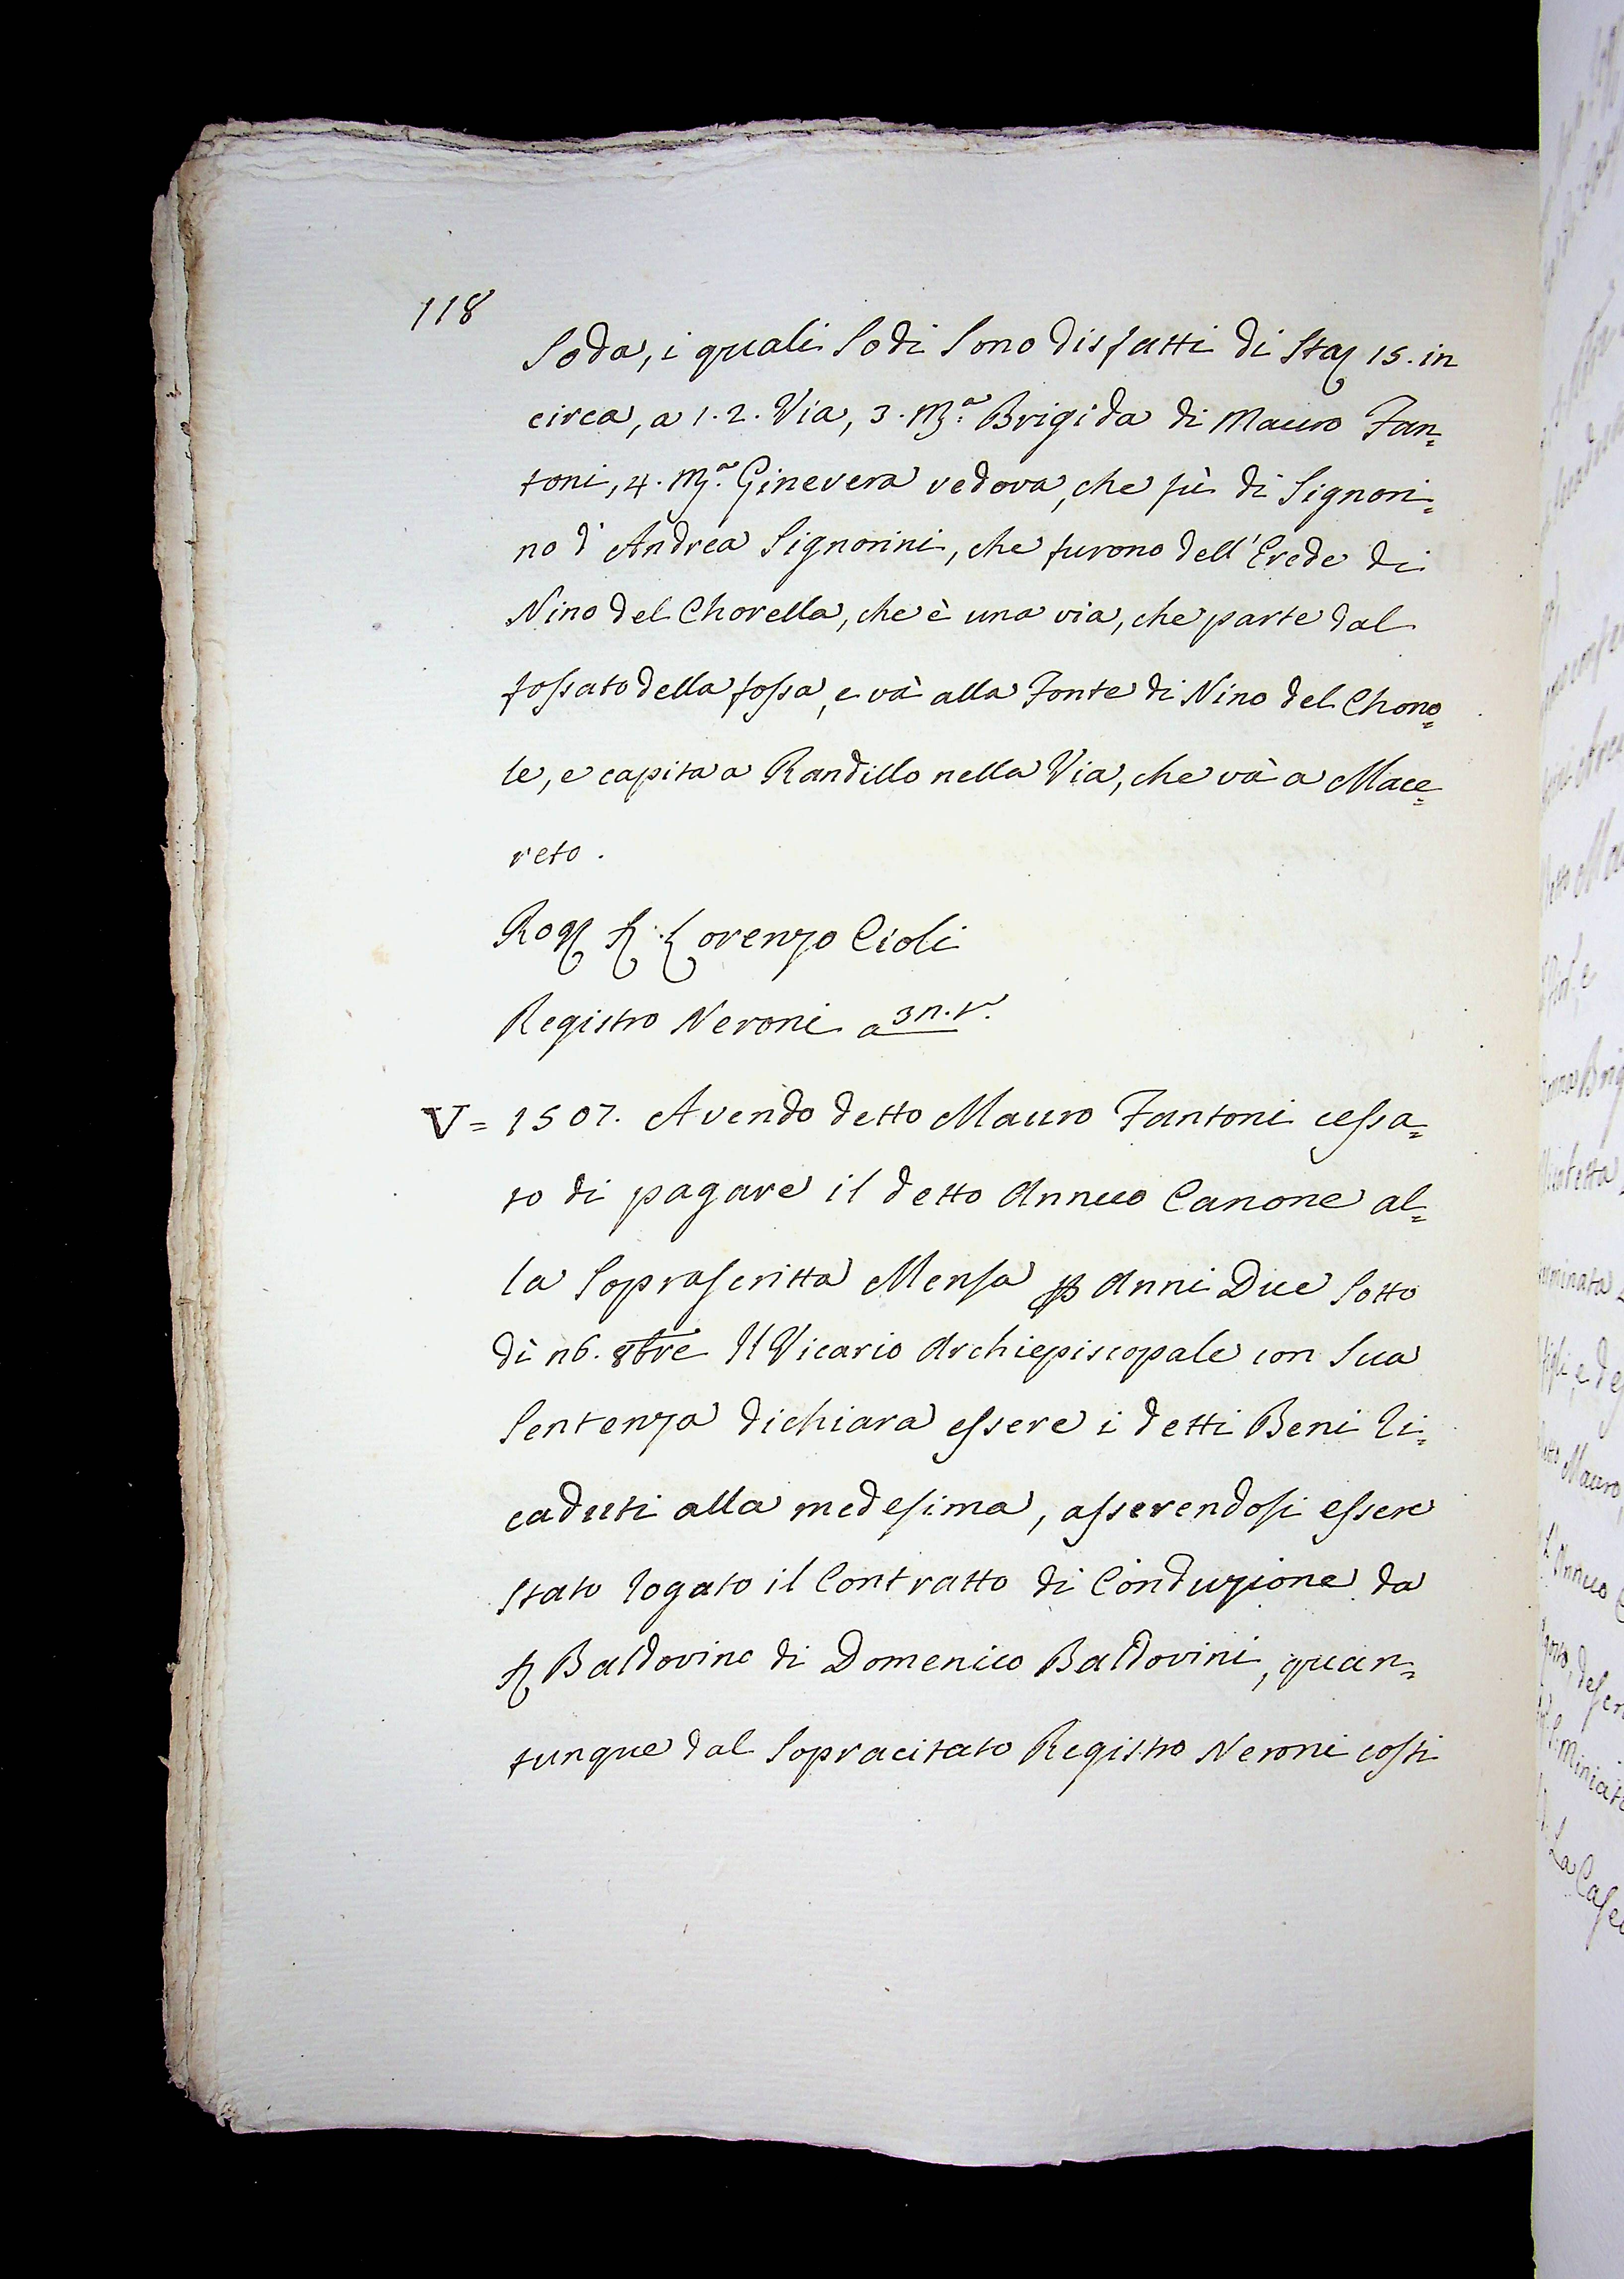 118
Soda, i quali Sodi Sono disfatti di Staj 15. in
circa, a 1. 2. Via, 3. M.ª Brigida di Mauro Fan=
toni, 4. M.ª Ginevera vedova, che fù di Signori=
no d'Andrea Signorini, che furono dell'Erede di
Nino del Chorella, che è una via, che parte dal
fossato della fossa, e và alla Fonte di Nino del Chono=
le, e capita a Randillo nella Via, che và a Mace=
reto.
Rog Lorenzo Cioli
Registro Neroni a
V= 1507. Avendo detto Mauro Fantoni cessa=
to di pagare il detto Annuo Canone al=
la Soprascritta Mensa Anni Due Sotto
dì 8bre Il Vicario Archiepiscopale con Sua
Sentenza dichiara essere i detti Beni ri=
caduti alla medesima, asserendosi essere
Stato rogato il Contratto di Conduzione da
Baldovino di Domenico Baldovini, quan=
tunque dal Sopracitato Registro Neroni costi